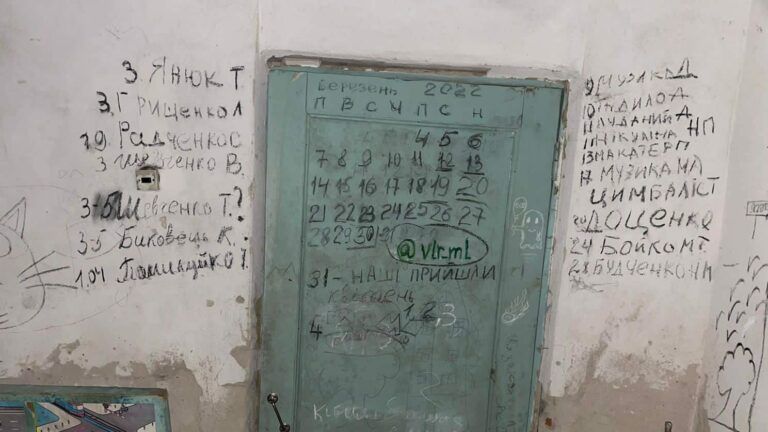 3. ЯНЮК Т
3. ГРИЩЕНКО Л
РАДЧЕНКО С
3 ШЕВЧЕНКО В.
3-5 ШЕВЧЕНКО Т.?
3-5 БИКОВЕЦЬ К.
1.04
БЕРЕЗЕНЬ 2022
П В С Ч П С Н
4 5 6
7 8 9 10 11 12 13
14 15 16 17 18 19 20
21 22 23 24 25 26 27
28 29 30 31
@vlr.ml
31 - НАШІ ПРИЙШЛИ
КВІТЕНЬ
1 2 3
4
9 МУЗИКА Д
НП
МУЗИКА МА
ЦИМБАЛІСТ
20 ДОЦЕНКО
24 БОЙКО МТ
28 БУДЧЕНКО НИ